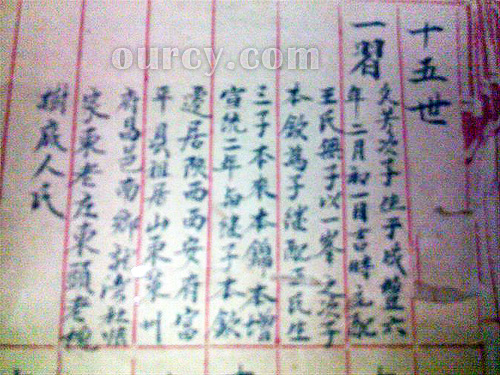 十五世
一習
次子 于咸豐六
年二月初一日吉時元配
王氏無子以一峯之次子
本欽為子继配王氏生
三子本來本錦本增
宣統二年与继子本欽
遷居陝西西安府富
平貝祖居山東萊州
府昌邑南鄉 社
東老庄東頭老槐
樹底人氏
ourcy.com